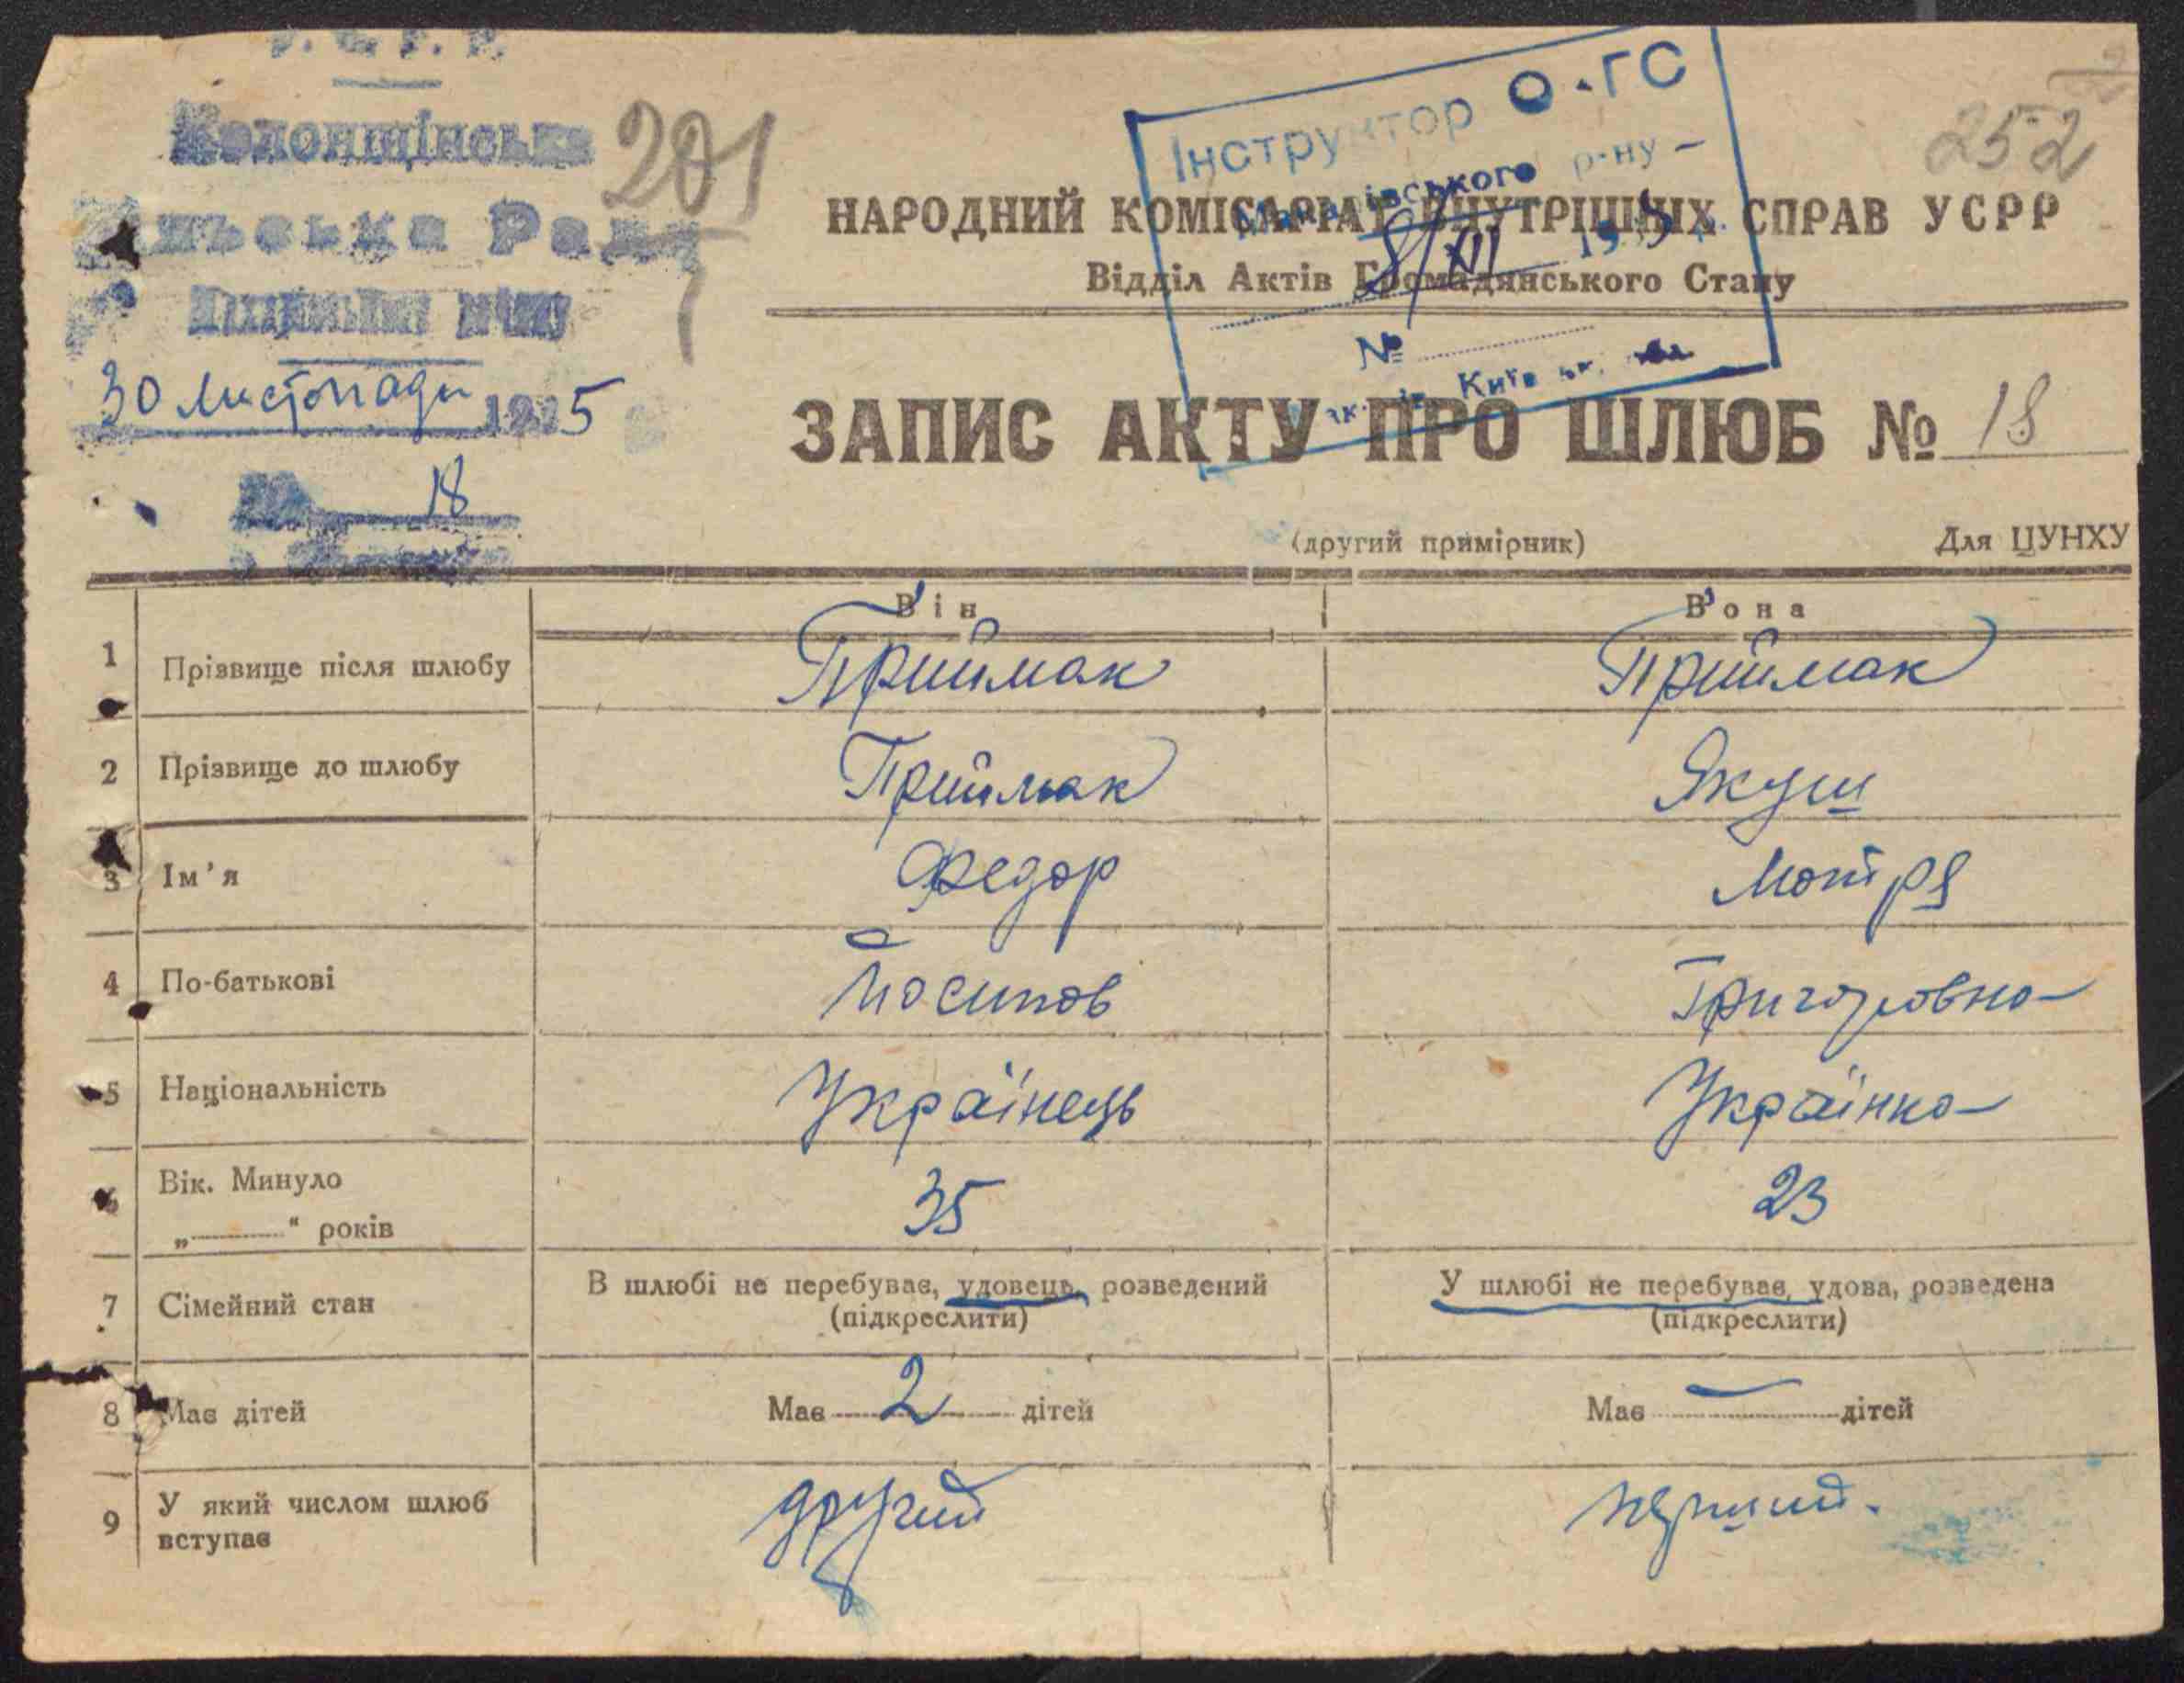 У. С. Р. Р.
201
252
Рада
30 листопада 1935
18
Інструктор О-ГС
Макарівського р-ну
8/XII 1935
№
НАРОДНИЙ КОМІСАРІАТ ВНУТРІШНІХ СПРАВ УСРР
Відділ Актів Громадянського Стану
ЗАПИС АКТУ ПРО ШЛЮБ № 18
(другий примірник) Для ЦУНХУ
Він Вона
1 Прізвище після шлюбу Приймак Приймак
2 Прізвище до шлюбу Приймак Якуш
3 Ім'я Федор Мотря
4 По-батькові Йосипов Григоровна
5 Національність Українець Українка
6 Вік. Минуло
„ “ років 35 23
7 Сімейний стан В шлюбі не перебуває, удовець, розведений У шлюбі не перебуває, удова, розведена
(підкреслити) (підкреслити)
8 Має дітей Має 2 дітей Має — дітей
9 У який числом шлюб
вступає другий перший.